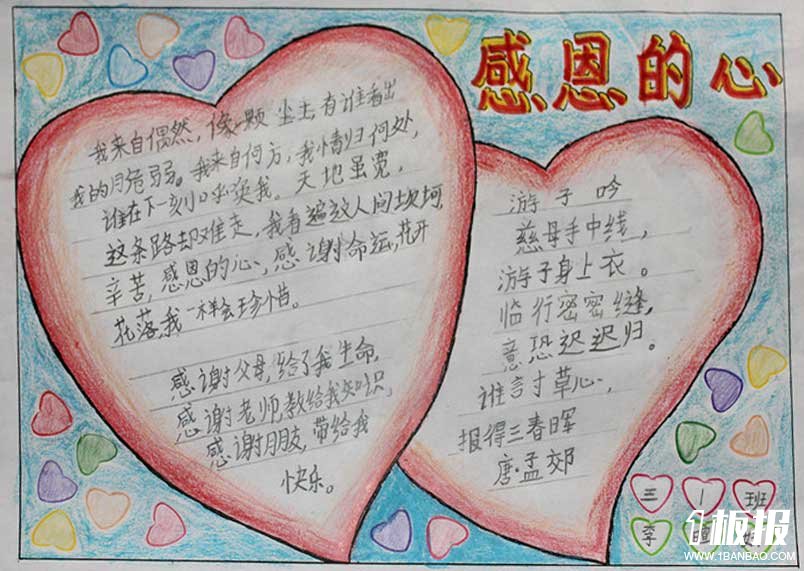 感恩的心
我来自偶然，像一颗尘土，有谁看出
我的脆弱。我来自何方，我情归何处，
谁在下一刻呼唤我。天地虽宽，
这条路却难走，我看遍这人间坎坷
辛苦，感恩的心，感谢命运，花开
花落，我一样会珍惜。
感谢父母，给了我生命，
感谢老师教给我知识，
感谢朋友，带给我
快乐。
游子吟
慈母手中线，
游子身上衣。
临行密密缝，
意恐迟迟归。
谁言寸草心，
报得三春晖
唐·孟郊
三 1 班
李
1板报
WWW.1BANBAO.COM